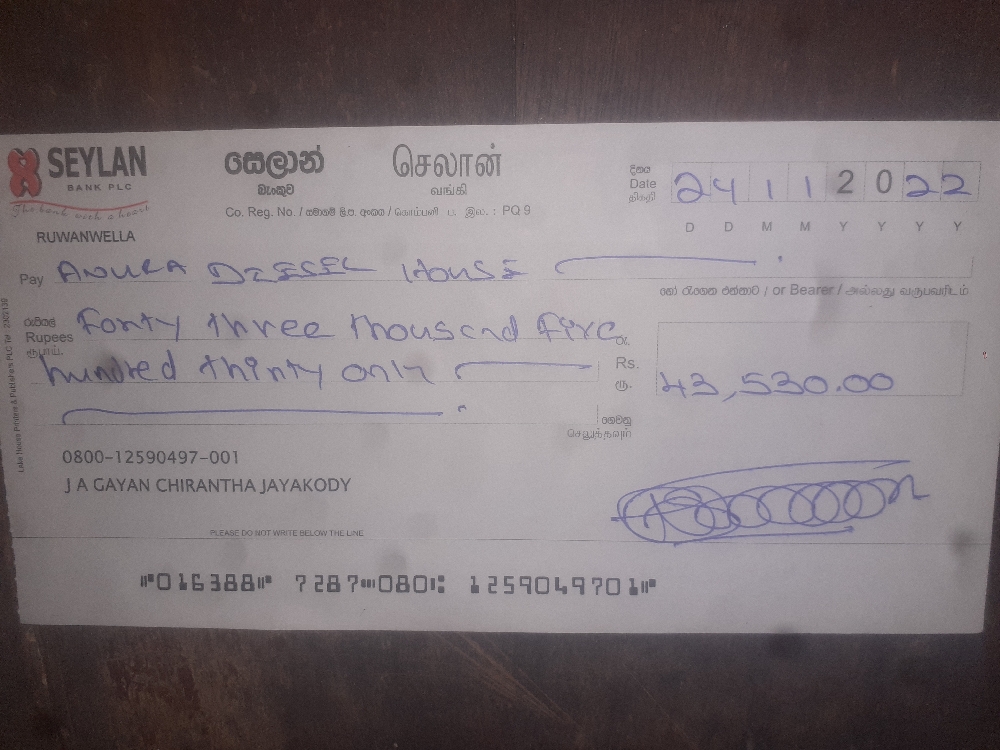 SEYLAN
BANK PLC
The bank with a heart
RUWANWELLA
සෙලාන්
බැංකුව
செலான்
வங்கி
Co. Reg. No. / සමාගම් ලි.ප. අංකය / கொம்பனி ப. இல. : PQ 9
දිනය
Date
திகதி
24 11 2022
D D M M Y Y Y Y
Pay ANURA DIESEL HOUSE
හෝ රැගෙන එන්නාට / or Bearer / அல்லது வருபவரிடம்
රුපියල්
Rupees
ரூபாய்
Forty three thousand five
hundred thirty only
රු.
Rs.
ரூ.
43,530.00
ගෙවනු
செலுத்தவும்
0800-12590497-001
J A GAYAN CHIRANTHA JAYAKODY
PLEASE DO NOT WRITE BELOW THE LINE
⑈016388⑈ 7287⑉080⑆ 1259049701⑈
Lake House Printers & Publishers PLC